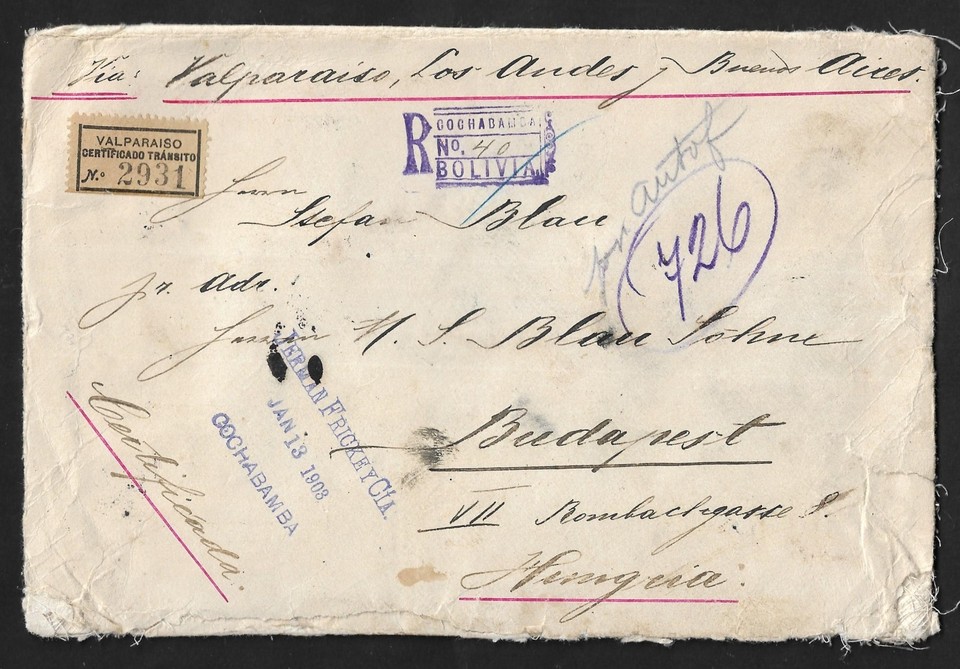 Via: Valparaiso, Los Andes y Buenos Aires.
VALPARAISO
CERTIFICADO TRÁNSITO
N.º 2931
R COCHABAMBA.
No. 40
BOLIVIA
Herrn
Stefan Blau
726
pr. Adr.
Herren M. S. Blau Söhne
HERMAN FRICKE Y CÍA.
JAN 13 1903
COCHABAMBA
Certificada.
Budapest
VII Rombachgasse 8.
Hungria.